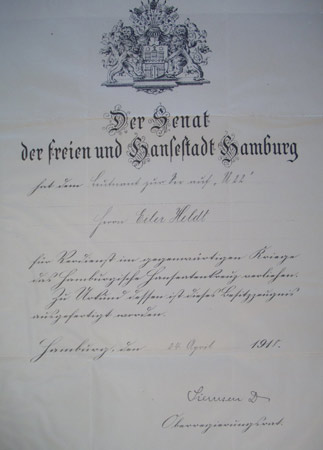 Der Senat
der freien und Hansestadt Hamburg
hat dem Leutnant zur See auf „U.22"
Herrn Erler Heldt
für Verdienst im gegenwärtigen Kriege
das Hamburgische Hanseatenkreuz verliehen.
Zu Urkund dessen ist dieses Besitzzeugnis
ausgefertigt worden.
Hamburg, den 24 April 1918.
Oberregierungsrat.